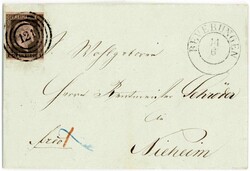 121
BEVERUNGEN
14
6
Wohlgeboren
Herrn Rentmeister Schröder
in
Nieheim